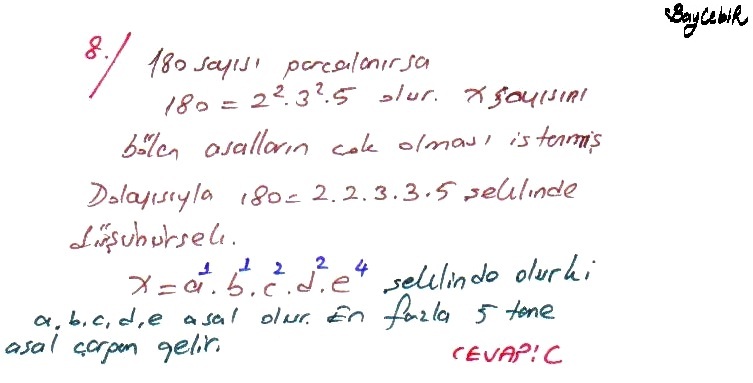 BayCebiR
8./ 180 sayısı parçalanırsa
180 = 2².3².5 olur. x sayısını
bölen asalların çok olması istenmiş
Dolayısıyla 180 = 2.2.3.3.5 şeklinde
düşünürsek.
x = a¹.b¹.c².d².e⁴ şeklinde olur ki
a,b,c,d,e asal olur. En fazla 5 tane
asal çarpan gelir. CEVAP: C